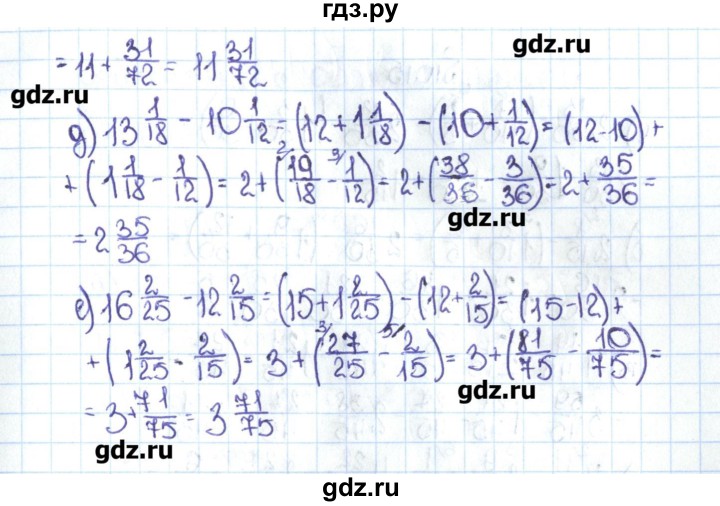 гдз.ру
= 11 + 31/72 = 11 31/72
gdz.ru
gdz.ru
д) 13 1/18 - 10 1/12 = (12 + 1 1/18) - (10 + 1/12) = (12-10) +
+ (1 1/18 - 1/12) = 2 + (2/ 19/18 - 3/ 1/12) = 2 + (38/36 - 3/36) = 2 + 35/36 =
gdz.ru
= 2 35/36
е) 16 2/25 - 12 2/15 = (15 + 1 2/25) - (12 + 2/15) = (15-12) +
+ (1 2/25 - 2/15) = 3 + (3/ 27/25 - 5/ 2/15) = 3 + (81/75 - 10/75) =
gdz.ru
= 3 + 71/75 = 3 71/75
gdz.ru
gdz.ru